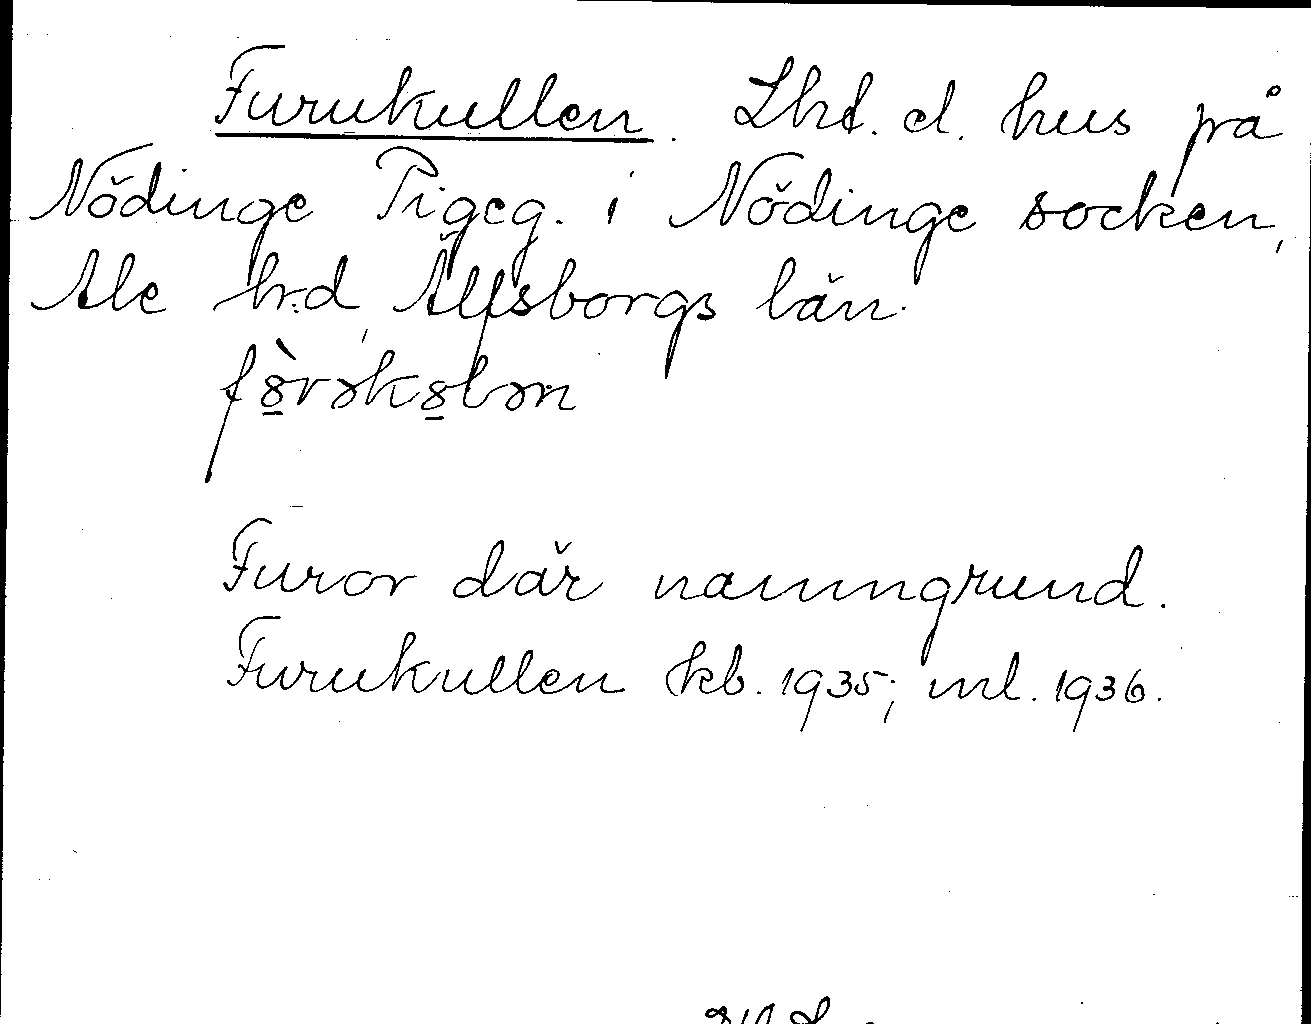 Furukullen. Lht. el. hus på
Nödinge Pigeg. i Nödinge socken,
Ale hrd, Älfsborgs län.
Furor där namngrund.
Furukullen kb. 1935; ml. 1936.